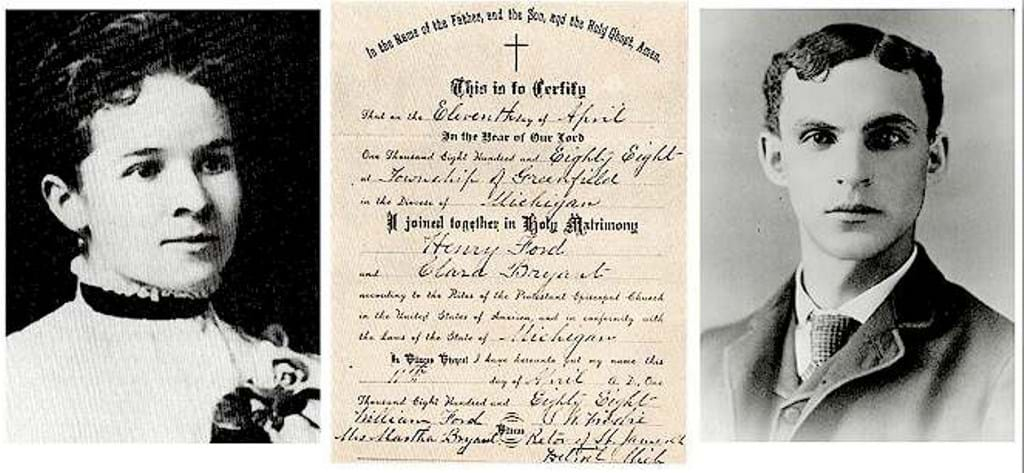 In the Name of the Father, and the Son, and the Holy Ghost, Amen.
This is to Certify
That on the Eleventh day of April
In the Year of Our Lord
One Thousand Eight Hundred and Eighty Eight
at Township of Greenfield
in the Diocese of Michigan
I joined together in Holy Matrimony
Henry Ford
and Clara Bryant
according to the Rites of the Protestant Episcopal Church
in the United States of America, and in conformity with
the Laws of the State of Michigan
In Witness Whereof I have hereunto put my name this
11th day of April A.D. One
Thousand Eight Hundred and Eighty Eight
William Ford
Mrs Martha Bryant Rector of St James
Detroit Mich